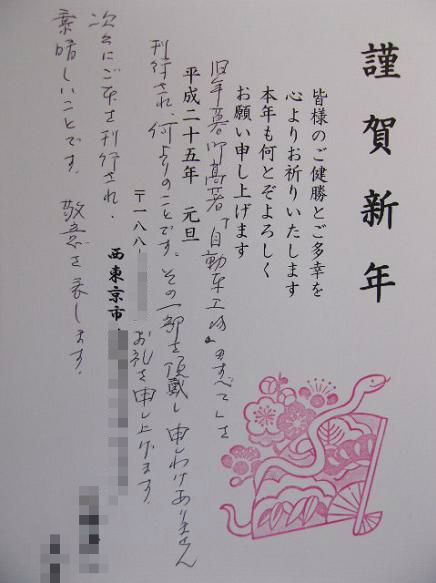 謹賀新年
皆様のご健勝とご多幸を
心よりお祈りいたします
本年も何とぞよろしく
お願い申し上げます
旧年暮御高著「自動車工場のすべて」を
平成二十五年 元旦
刊行され、何よりのことです。その一部を頂戴し申しわけありません
〒一八八
お礼を申し上げます。
西東京市
次々にご本を刊行され、
素晴しいことです。敬意を表します。